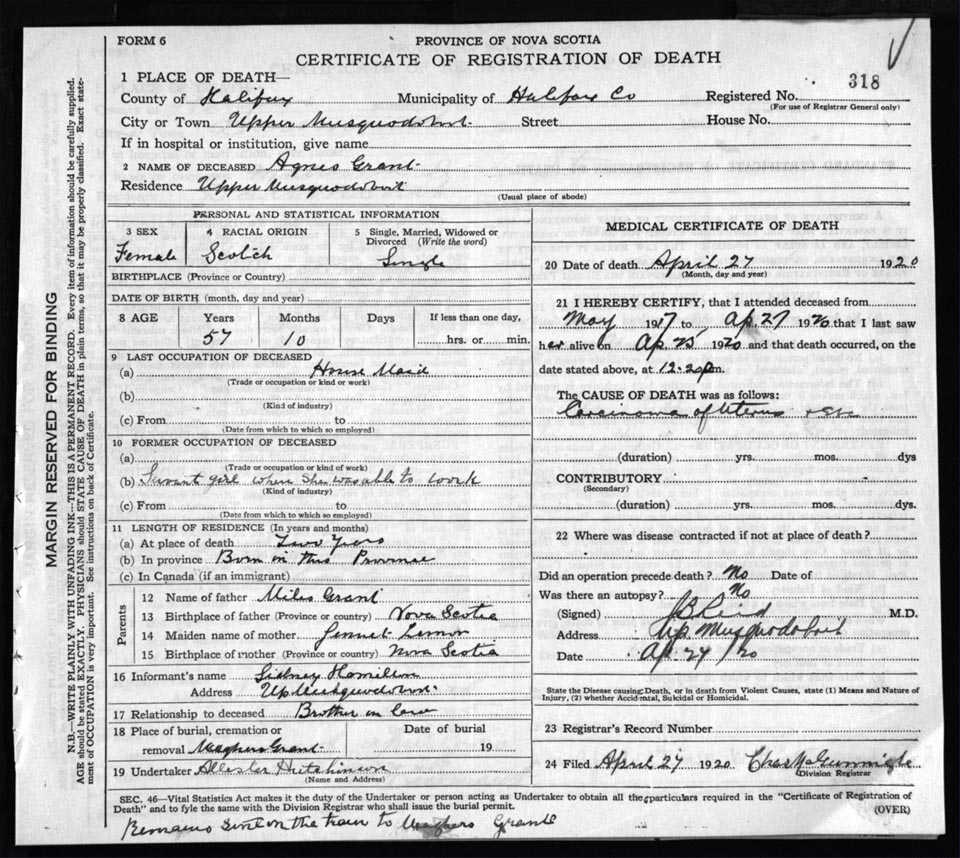 FORM 6
PROVINCE OF NOVA SCOTIA
CERTIFICATE OF REGISTRATION OF DEATH
318
1 PLACE OF DEATH—
County of Halifax Municipality of Halifax Co Registered No.
(For use of Registrar General only)
City or Town Upper Musquodoboit Street House No.
If in hospital or institution, give name
2 NAME OF DECEASED Agnes Grant
Residence Upper Musquodoboit
(Usual place of abode)
MARGIN RESERVED FOR BINDING
N.B.—WRITE PLAINLY WITH UNFADING INK—THIS IS A PERMANENT RECORD. Every item of information should be carefully supplied.
AGE should be stated EXACTLY. PHYSICIANS should STATE CAUSE OF DEATH in plain terms, so that it may be properly classified. Exact state-
ment of OCCUPATION is very important. See instructions on back of Certificate.
PERSONAL AND STATISTICAL INFORMATION
3 SEX 4 RACIAL ORIGIN 5 Single, Married, Widowed or
Divorced (Write the word)
Female Scotch Single
BIRTHPLACE (Province or Country)
DATE OF BIRTH (month, day and year)
8 AGE Years Months Days If less than one day,
57 10 hrs. or min.
9 LAST OCCUPATION OF DECEASED
(a) House Maid
(Trade or occupation or kind or work)
(b)
(Kind of industry)
(c) From to
(Date from which to which so employed)
10 FORMER OCCUPATION OF DECEASED
(a)
(Trade or occupation or kind of work)
(b) Servant girl when she was able to work
(Kind of industry)
(c) From to
(Date from which to which so employed)
11 LENGTH OF RESIDENCE (In years and months)
(a) At place of death Two Years
(b) In province Born in this Province
(c) In Canada (if an immigrant)
Parents
12 Name of father Miles Grant
13 Birthplace of father (Province or country) Nova Scotia
14 Maiden name of mother
15 Birthplace of mother (Province or country) Nova Scotia
16 Informant's name Sidney Hamilton
Address Up Musquodoboit
17 Relationship to deceased Brother in law
18 Place of burial, cremation or Date of burial
removal Meaghers Grant 19
19 Undertaker Hutchinson
(Name and Address)
MEDICAL CERTIFICATE OF DEATH
20 Date of death April 27 1920
(Month, day and year)
21 I HEREBY CERTIFY, that I attended deceased from
May 1917 to Ap. 27 1920 that I last saw
her alive on Ap. 25 1920 and that death occurred, on the
date stated above, at 12.20 p m.
The CAUSE OF DEATH was as follows:
Carcinoma of Uterus
(duration) yrs. mos. dys
CONTRIBUTORY
(Secondary)
(duration) yrs. mos.
22 Where was disease contracted if not at place of death?
Did an operation precede death? No Date of
Was there an autopsy? No
(Signed) M.D.
Address Up Musquodoboit
Date Ap. 27/20
State the Disease causing Death, or in death from Violent Causes, state (1) Means and Nature of
Injury, (2) whether Accidental, Suicidal or Homicidal.
23 Registrar's Record Number
24 Filed April 27 1920
Division Registrar
SEC. 46—Vital Statistics Act makes it the duty of the Undertaker or person acting as Undertaker to obtain all the particulars required in the "Certificate of Registration of
Death" and to fyle the same with the Division Registrar who shall issue the burial permit.
(OVER)
Remains sent on the train to Meaghers Grant